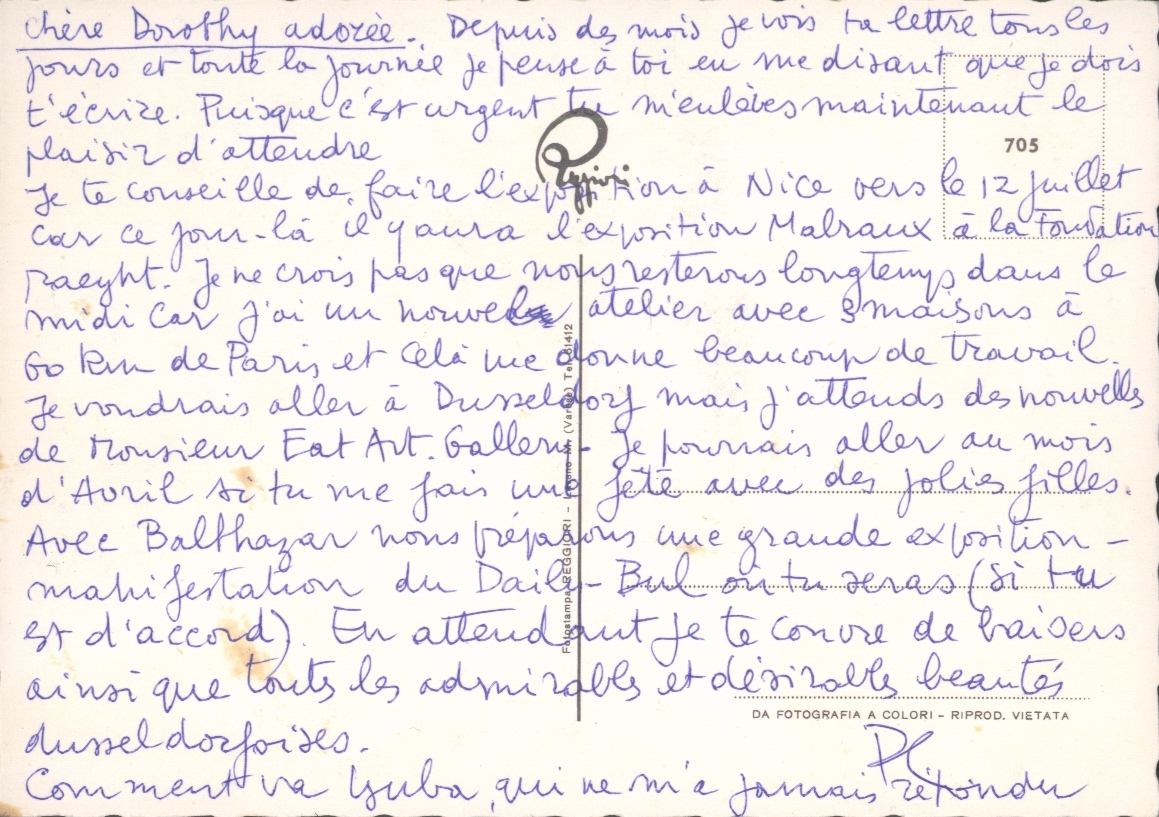 chère Dorothy adorée. Depuis des mois je vois ta lettre tous les
jours et toute la journée je pense à toi en me disant que je dois
t'écrire. Puisque c'est urgent tu m'enlèves maintenant le
plaisir d'attendre
705
Reggiori
Je te conseille de faire l'exposition à Nice vers le 12 juillet
car ce jour-là il y aura l'exposition Malraux à la Fondation
Maeght. Je ne crois pas que nous resterons longtemps dans le
midi car j'ai un nouvel atelier avec 3 maisons à
60 km de Paris et celà me donne beaucoup de travail.
Je voudrais aller à Dusseldorf mais j'attends des nouvelles
de Monsieur Eat Art. Gallery. Je pourrais aller au mois
d'Avril si tu me fais une fête avec des jolies filles.
Avec Balthazar nous préparons une grande exposition –
manifestation du Daily-Bul où tu seras (si tu
est d'accord). En attendant je te couvre de baisers
ainsi que toutes les admirables et désirables beautés
dusseldorfoises.
Comment va, qui ne m'a jamais répondu
PC
Fotostampa REGGIORI – M. (Varese) Tel. 61412
DA FOTOGRAFIA A COLORI – RIPROD. VIETATA